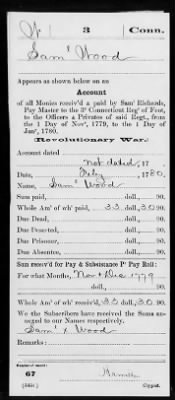 W 3 Conn.
Sam'l Wood
Appears as shown below on an
Account
of all Monies receiv'd & paid by Sam' Richards,
Pay Master to the 3ᵈ Connecticut Reg' of Foot,
to the Officers & Privates of said Regt., from
the 1 Day of Nov', 1779, to the 1 Day of
Jan', 1780.
(Revolutionary War.)
Account dated
Not dated, 17
July 1780.
Name, Sam'l Wood
Sum paid, doll., 90.
Whole Am' of wh' paid, 33 doll., 30 90.
Due Dead, doll., 90.
Due Deserted, doll., 90.
Due Prisoner, doll., 90.
Due Absentee, doll., 90.
Sum receiv'd for Pay & Subsistance Pʳ Pay Roll:
For what Months, Nov & Dec 1779
doll., 90.
Whole Am' of wh' receiv'd, 33 doll., 30 90.
We the Subscribers have received the Sums annexed to our Names respectively.
Sam'l x Wood
Remarks:
Number of record:
67
(545c) Copyist.